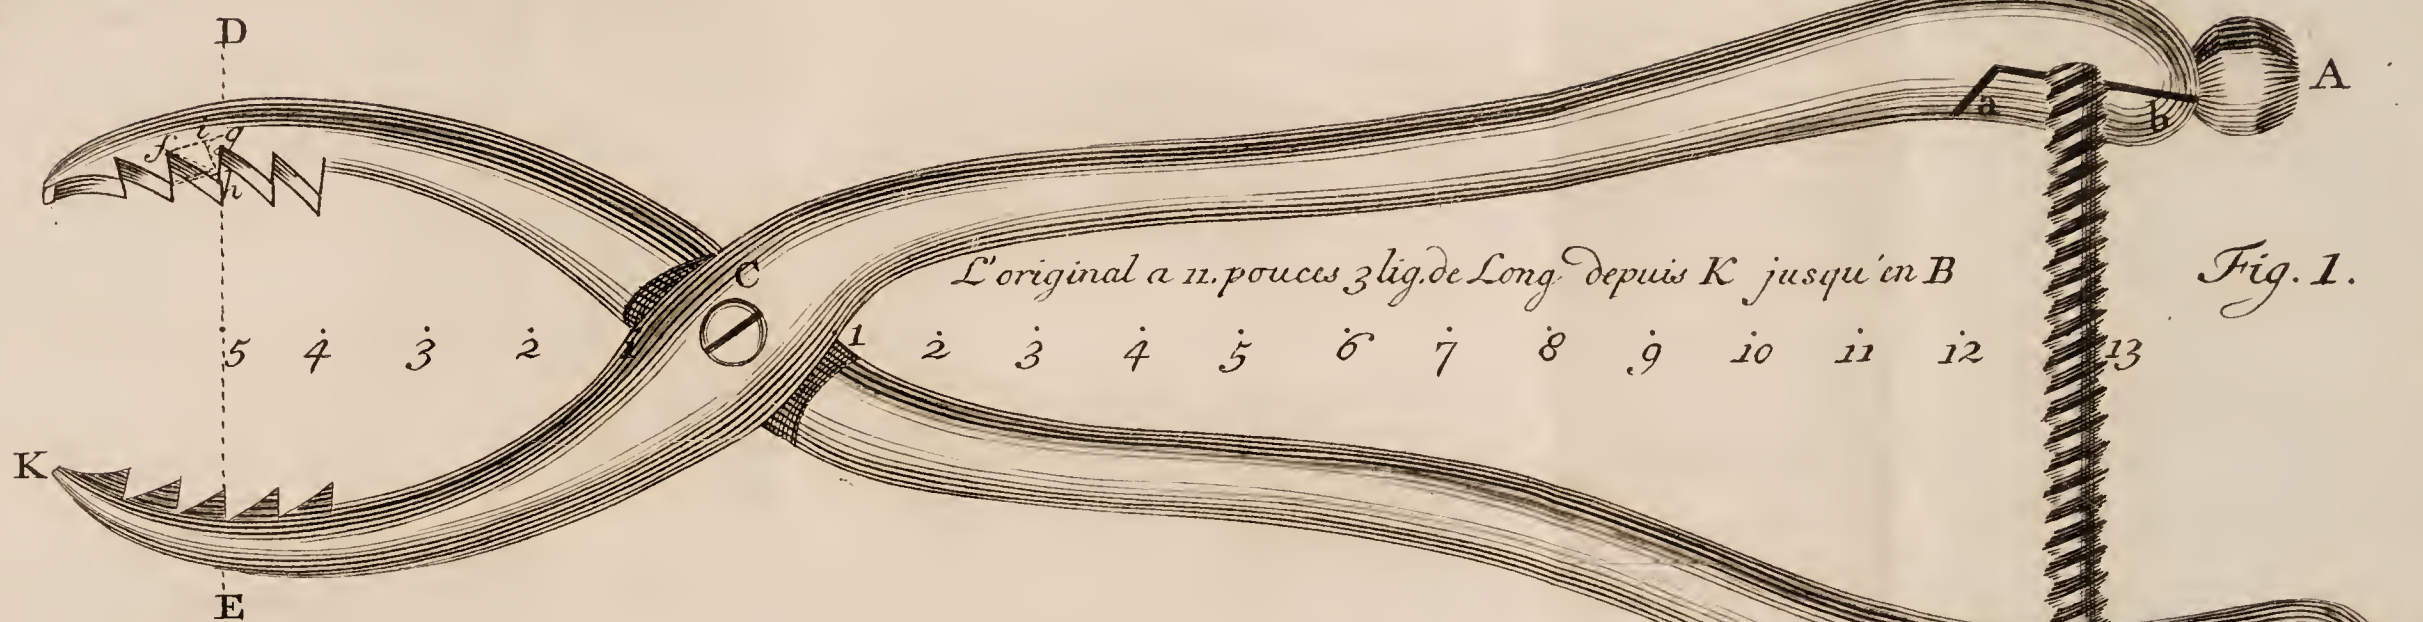 D
A
a
b
f i g
h
C
L'original a 11. pouces 3 lig. de Long depuis K jusqu'en B
Fig. 1.
5 4 3 2 1 1 2 3 4 5 6 7 8 9 10 11 12 13
K
E